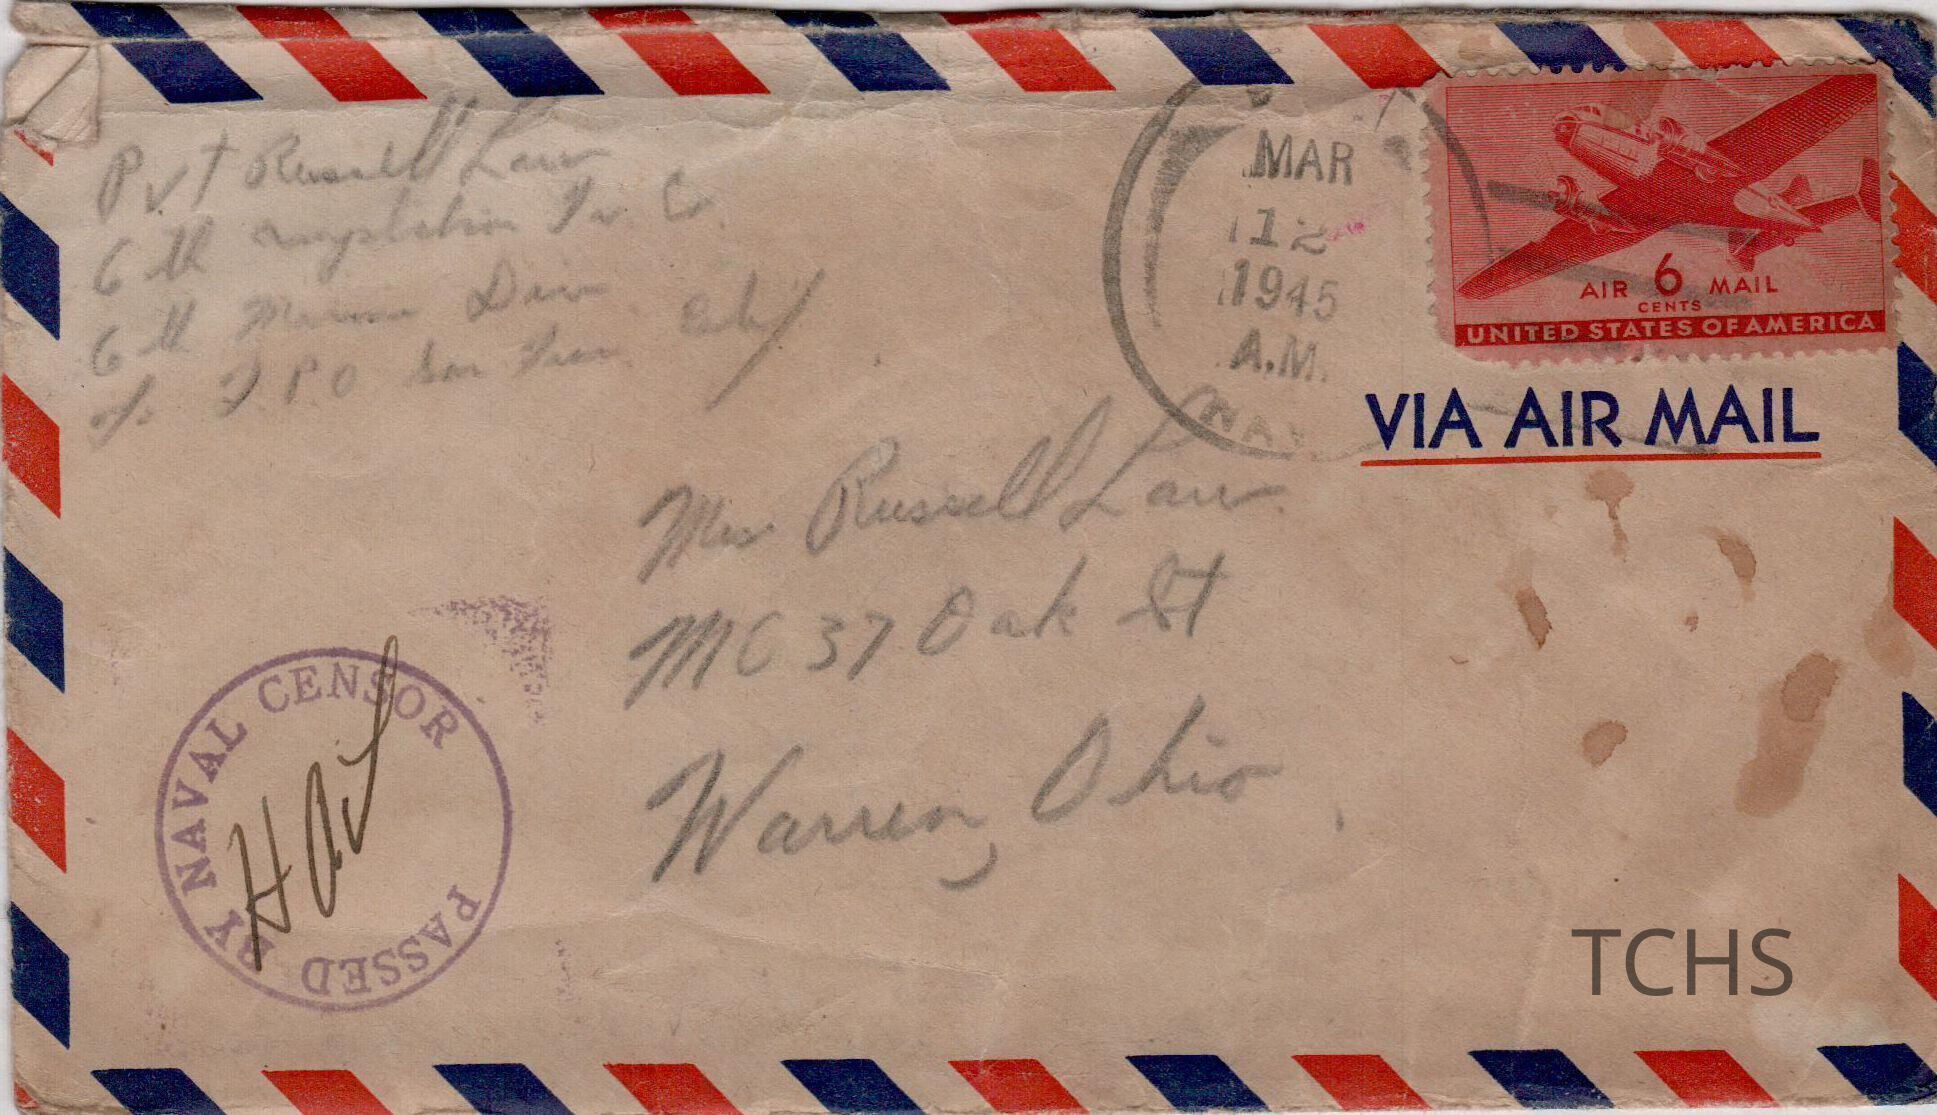 Pvt Russell Law
6th Tr. Co
6th Marine Div
c/o F.P.O San Fran Calif
MAR
12
1945
A.M.
NAV
AIR 6 MAIL
CENTS
UNITED STATES OF AMERICA
VIA AIR MAIL
Mrs Russell Law
MC 37 Oak St
Warren, Ohio
PASSED BY NAVAL CENSOR
TCHS